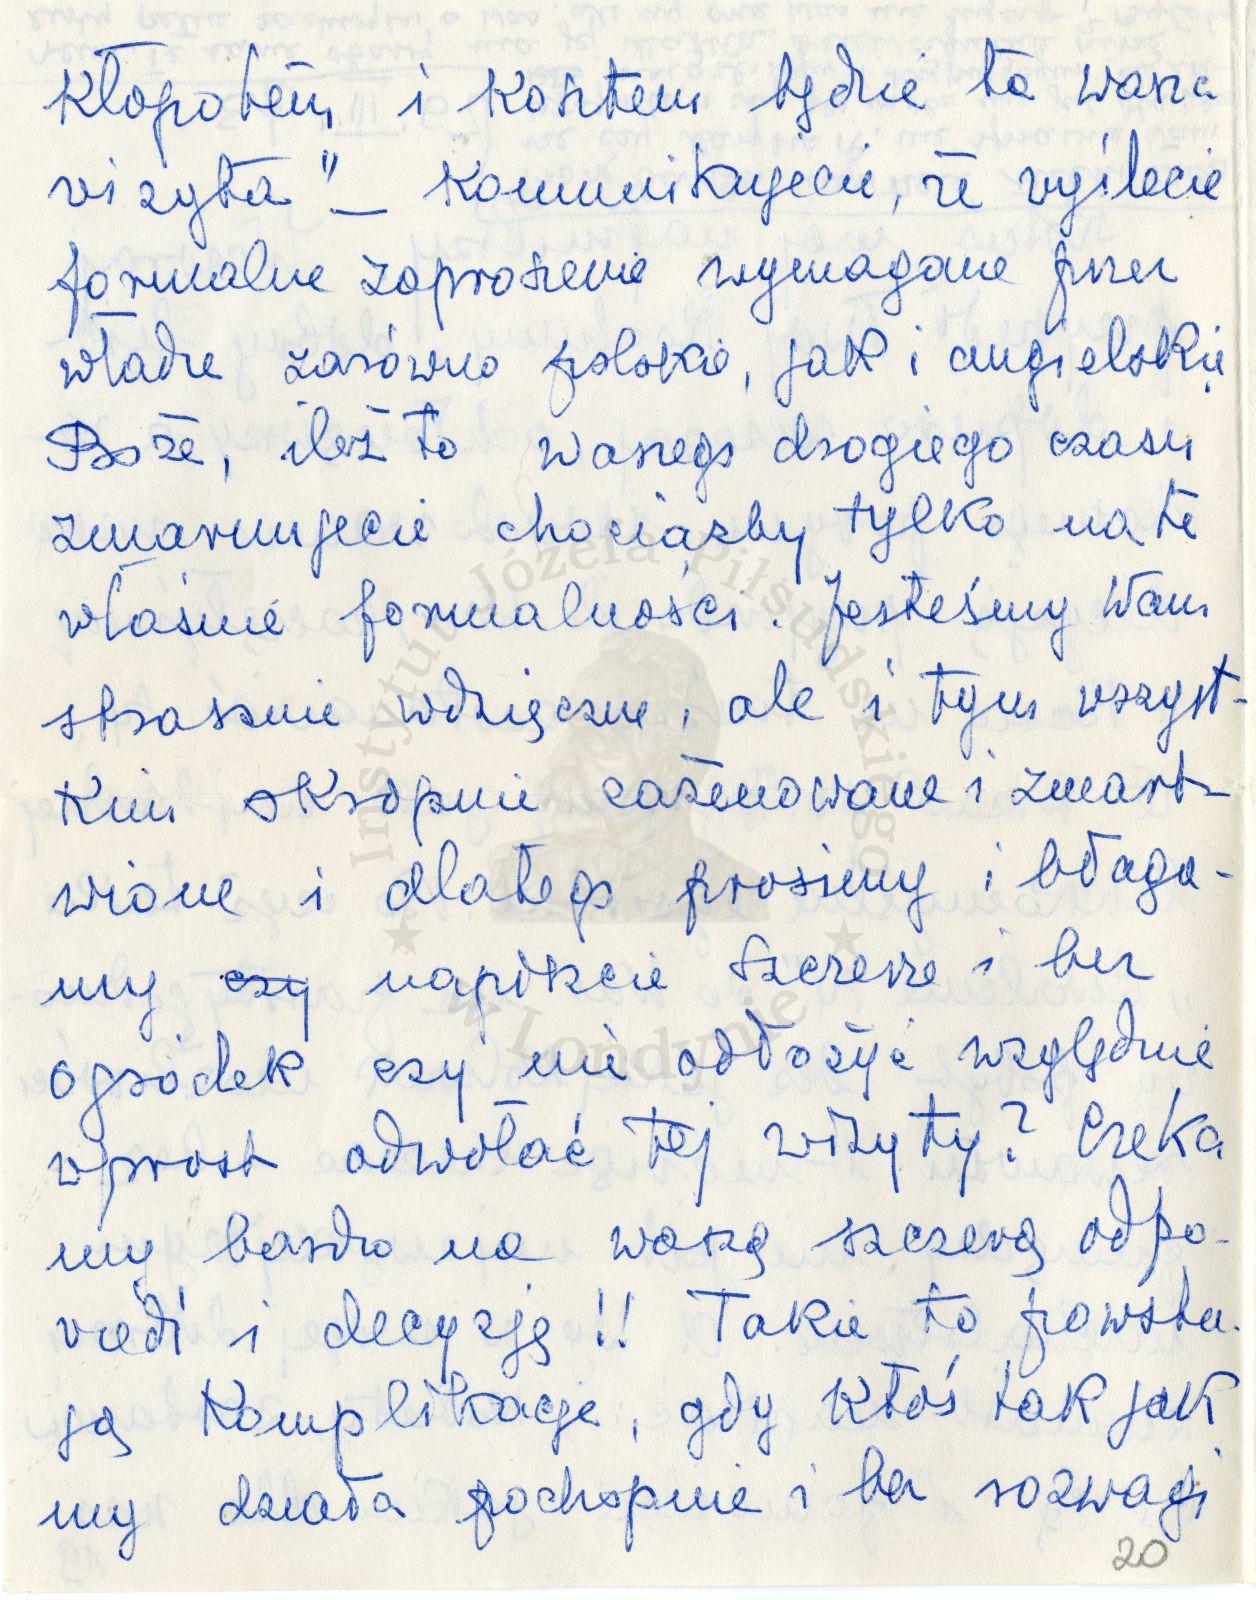 kłopotem i kosztem będzie ta wasza
wizyta" – komunikujecie, że wyślecie
formalne zaproszenie wymagane przez
władze zarówno polskie, jak i angielskie
Boże, ileż to waszego drogiego czasu
zmarnujecie chociażby tylko na te
właśnie formalności. Jesteśmy Wam
strasznie wdzięczne, ale i tym wszyst-
kim okropnie zażenowane i zmart-
wione i dlatego prosimy i błaga-
my czy napiszcie szczerze i bez
ogródek czy nie odłożyć względnie
wprost odwołać tej wizyty? Czeka
my bardzo na waszą szczerą odpo-
wiedź i decyzję!! Takie to powsta-
ją komplikacje, gdy ktoś tak jak
my działa pochopnie i bez rozwagi
20
Instytut Józefa Piłsudskiego
w Londynie